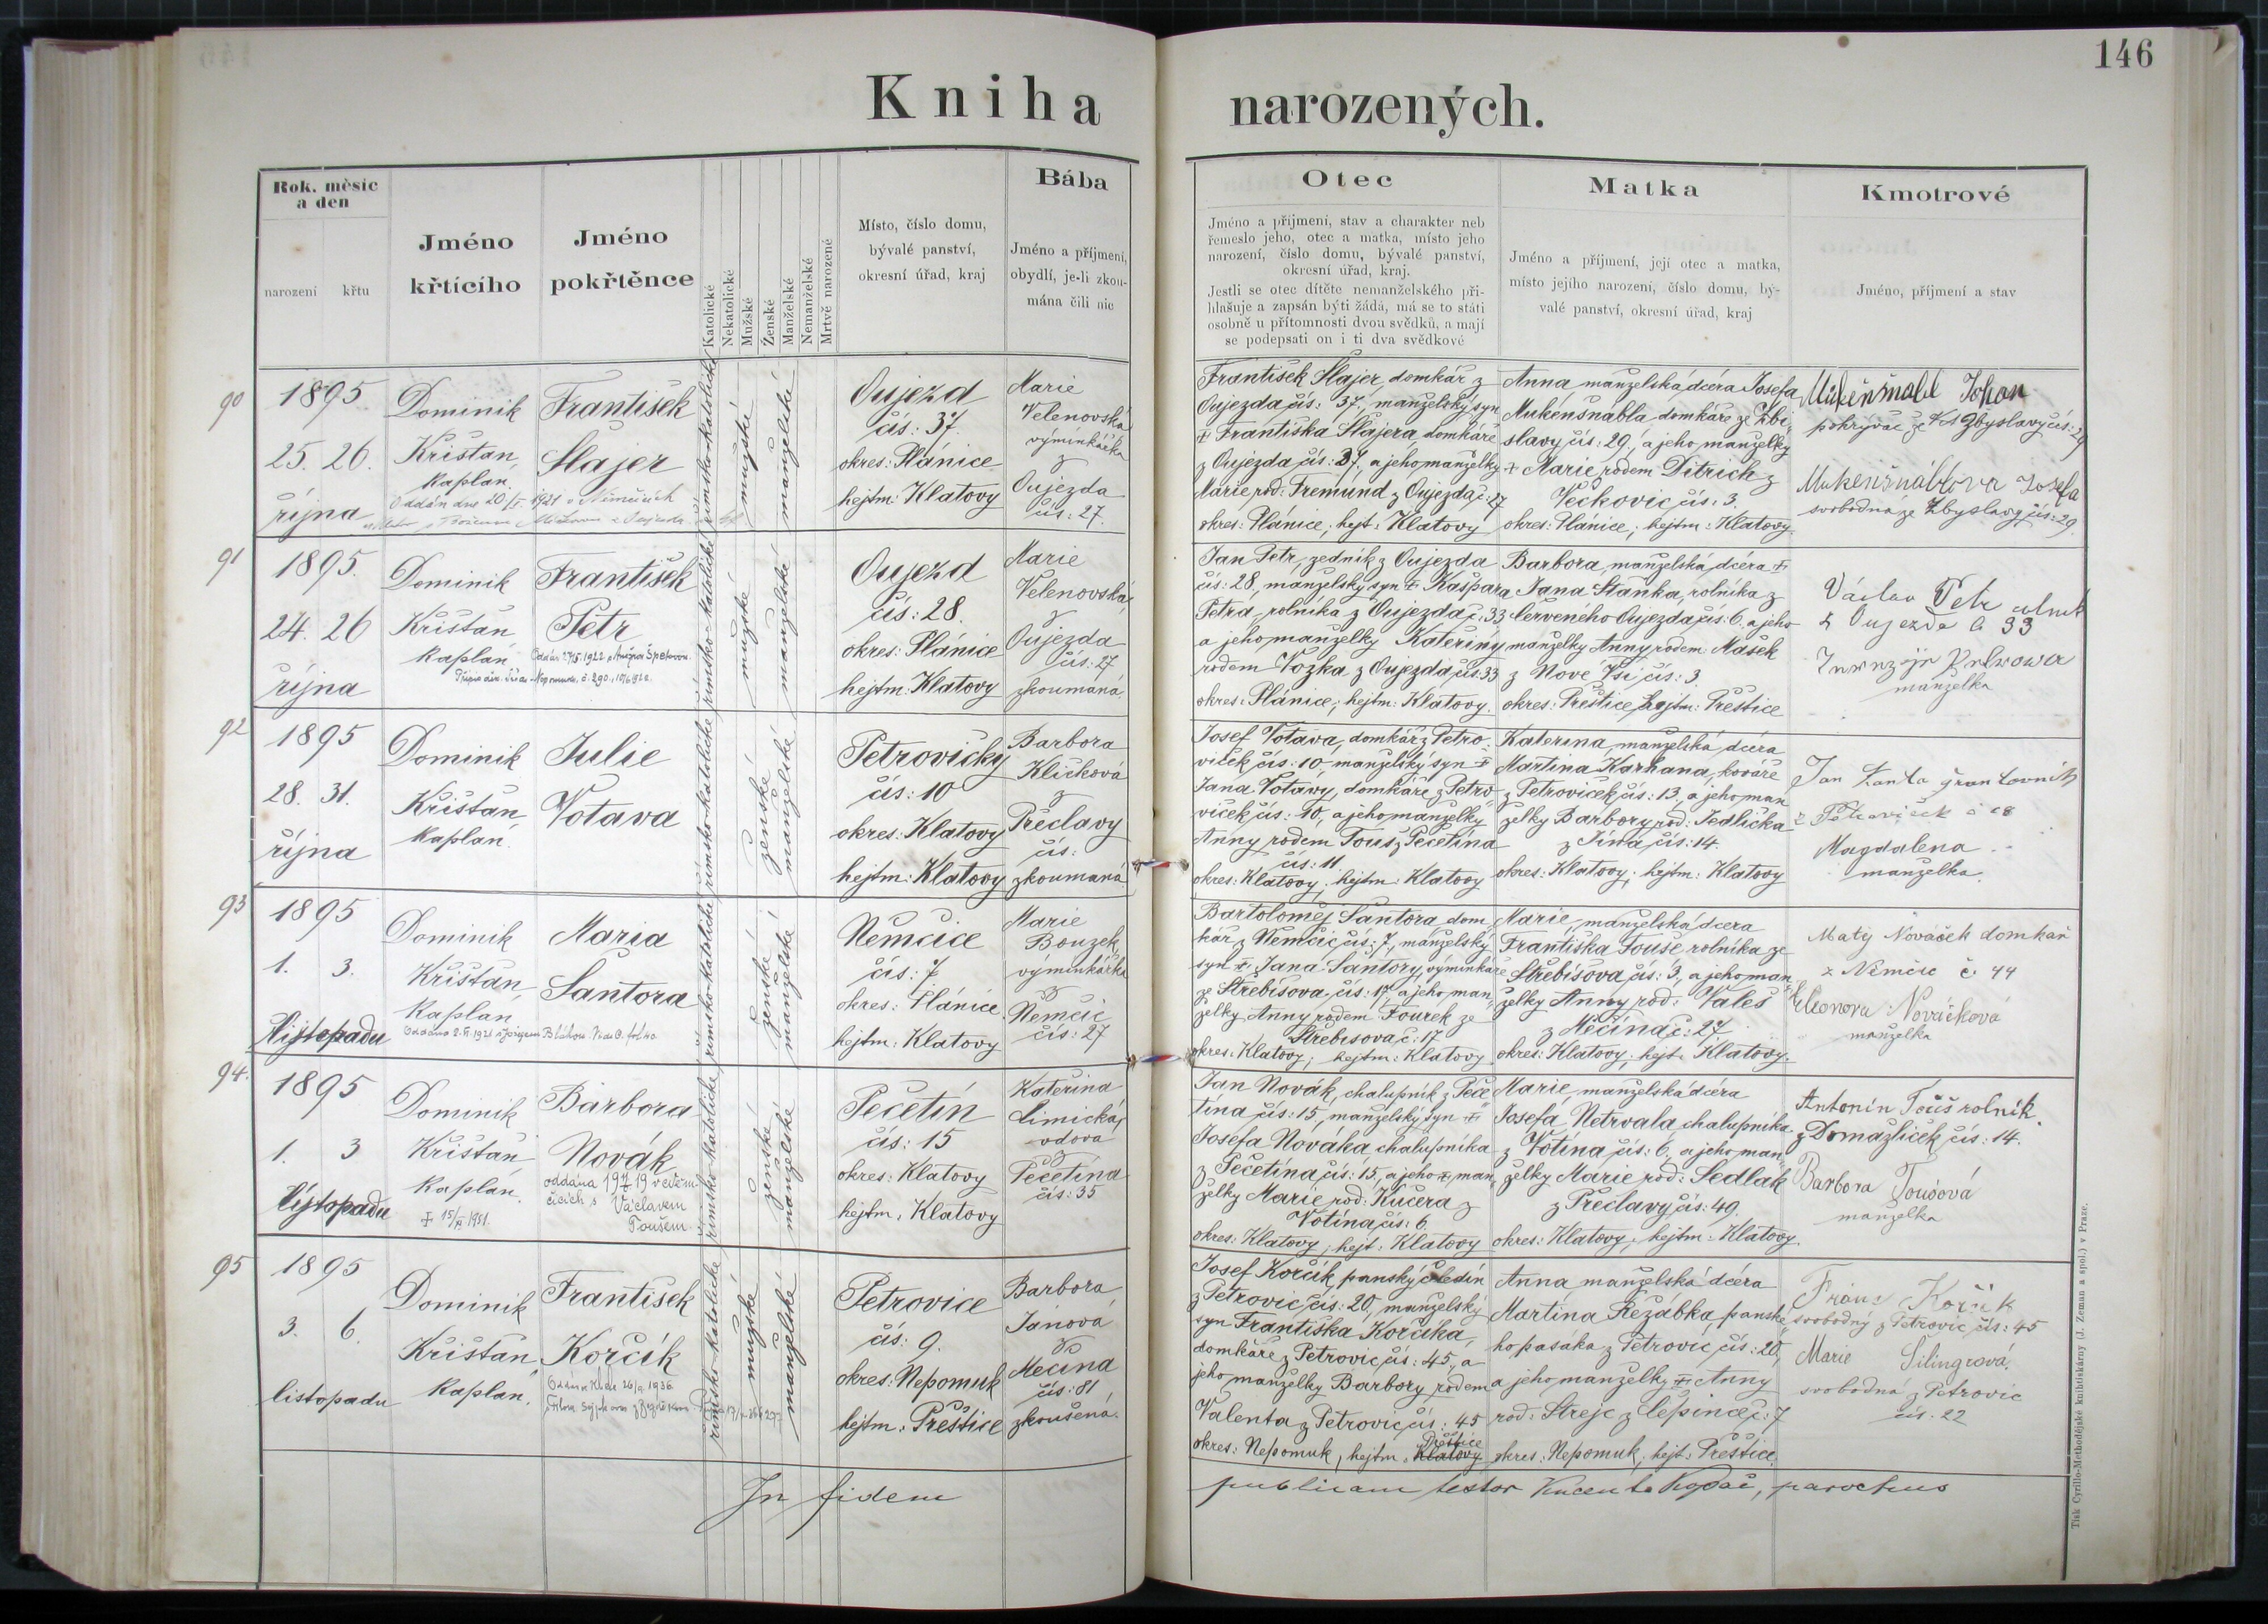 146
Kniha narozených.
Rok, měsíc a den
narození
křtu
Jméno křtícího
Jméno pokřtěnce
Katolické
Nekatolické
Mužské
Ženské
Manželské
Nemanželské
Mrtvě narozené
Místo, číslo domu,
bývalé panství,
okresní úřad, kraj
Bába
Jméno a příjmení,
obydlí, je-li zkou-
mána čili nic
Otec
Jméno a příjmení, stav a charakter neb
řemeslo jeho, otec a matka, místo jeho
narození, číslo domu, bývalé panství,
okresní úřad, kraj.
Jestli se otec dítěte nemanželského při-
hlašuje a zapsán býti žádá, má se to státi
osobně u přítomnosti dvou svědků, a mají
se podepsati on i ti dva svědkové
Matka
Jméno a příjmení, její otec a matka,
místo jejího narození, číslo domu, bý-
valé panství, okresní úřad, kraj
Kmotrové
Jméno, příjmení a stav
90
1895
25. 26.
října
Dominik
Křišťan,
kaplan.
František
Šlajer
Oddán dne 20/II. 1921 v Němčicích
římsko-katolické
mužské
manželské
Oujezd
čís: 37.
okres: Plánice
hejtm: Klatovy
Marie
Velenovská
výminkářka
z
Oujezda
čís: 27.
František Šlajer, domkář z
Oujezda čís: 37, manželský syn
+ Františka Šlajera domkáře
z Oujezda čís: 37, a jeho manželky
Marie rod: Fremund z Oujezda č: 27
okres: Plánice; hejt: Klatovy
Anna, manželská dcera Josefa
Mukenšnabla domkáře ze Zbi-
slavy čís: 29, a jeho manželky
+ Marie rodem Ditrich z
Věckovic čís: 3.
okres: Plánice; hejtm: Klatovy.
Mukenšnabl Johan
pokrývač ze Zbyslavy čís: 29
Mukenšnáblova Josefa
svobodná ze Zbyslavy čís: 29.
91
1895.
24. 26
října
Dominik
Křišťan
kaplan
František
Petr
římsko-katolické
mužské
manželské
Oujezd
čís: 28.
okres: Plánice
hejtm: Klatovy
Marie
Velenovská,
z
Oujezda
čís: 27
zkoumaná.
Jan Petr, zedník z Oujezda
čís: 28, manželský syn + Kašpara
Petra, rolníka z Oujezda č: 33
a jeho manželky Kateřiny
rodem Vozka z Oujezda čís: 33
okres: Plánice; hejtm: Klatovy.
Barbora, manželská dcéra +
Jana Staňka, rolníka z
Červeného Oujezda čís: 6, a jeho
manželky Anny rodem: Mašek
z Nové Vsi čís: 3.
okres: Přeštice hejtm: Přeštice
Václav Petr
z Oujezda č 33
manželka
92
1895
28. 31.
října
Dominik
Křišťan
kaplan.
Julie
Votava
římsko-katolické
ženské
manželské
Petrovičky
čís: 10
okres: Klatovy
hejtm: Klatovy
Barbora
Klíčková
z
Předslavy
čís:
zkoumaná.
Josef Votava, domkář z Petro-
viček čís: 10 manželský syn +
Jana Votavy, domkáře z Petro-
viček čís: 10, a jeho manželky
Anny rodem Touš z Pečetína
čís: 11
okres: Klatovy; hejtm: Klatovy
Kateřina, manželská dcéra
Martina Karhana, kováře
z Petroviček čís: 13, a jeho man-
želky Barbory rod: Jedlička
z Jina čís: 14.
okres: Klatovy; hejtm: Klatovy
Jan
Magdalena
manželka.
93
1895
1. 3.
listopadu
Dominik
Křišťan,
kaplan
Maria
Šantora
římsko-katolické
ženské
manželské
Němčice
čís: 7
okres: Plánice
hejtm: Klatovy
Marie
Bouzek,
výminkářka
z
Němčic
čís: 27
Bartoloměj Šantora, dom-
kář z Němčic čís: 7, manželský
syn + Jana Šantory, výminkáře
ze Střebíšova čís: 17 a jeho man-
želky Anny rodem Fourek ze
Střebišova č: 17
okres: Klatovy; hejtm: Klatovy
Marie, manželská dcera
Františka Touše rolníka ze
Střebišova čís: 3, a jeho man-
želky Anny rod: Valeš
z Měčína č: 27
okres: Klatovy; hejt: Klatovy.
Matěj Nováček domkář
z Němčic č. 44
Eleonora Nováčková
manželka
94.
1895
1. 3
listopadu
Dominik
Křišťan
kaplan.
+ 15/XI 1951.
Barbora
Novák
Václavem
Toušem
římsko-katolické
ženské
manželské
Pečetín
čís: 15
okres: Klatovy
hejtm: Klatovy
Kateřina
Limická,
vdova
z
Pečetína
čís: 35
Jan Novák, chalupník z Peče-
tína čís: 15, manželský syn +
Josefa Nováka, chalupníka
z Pečetína čís: 15, a jeho + man-
želky Marie rod: Kučera z
Votína čís: 6.
okres: Klatovy; hejt: Klatovy
Marie manželská dcéra
Josefa Netrvala, chalupníka
z Votína čís: 6, a jeho man-
želky Marie rod: Sedlák
z Předslavy čís: 49.
okres: Klatovy; hejtm: Klatovy.
Antonín Touš rolník
z Domažliček čís: 14.
Barbora Toušová
manželka
95
1895
3. 6.
listopadu
Dominik
Křišťan,
kaplan,
František
Korčík
římsko-katolické
mužské
manželské
Petrovice
čís: 9.
okres: Nepomuk
hejtm: Přeštice
Barbora
Janová
z
Měčína
čís: 81
zkoušená.
Josef Korčík, panský čeledín
z Petrovic čís: 20, manželský
syn Františka Korčíka,
domkáře z Petrovic čís: 45, a
jeho manželky Barbory, rodem
Valenta z Petrovic čís: 45
okres: Nepomuk, hejtm: Klatovy Přeštice
Anna manželská dcéra
Martina Řezábka, panské-
ho pasáka z Petrovic čís: 20,
a jeho manželky + Anny
rod: Strejc z č: 7
okres: Nepomuk, hejt: Přeštice.
Franc Korčik
svobodný z Petrovic čís: 45
Marie Šilingrová,
svobodná z Petrovic
čís. 22
In fidem publicam testor parochus
Tisk Cyrillo-Methodějské knihtiskárny (J. Zeman a spol.) v Praze.